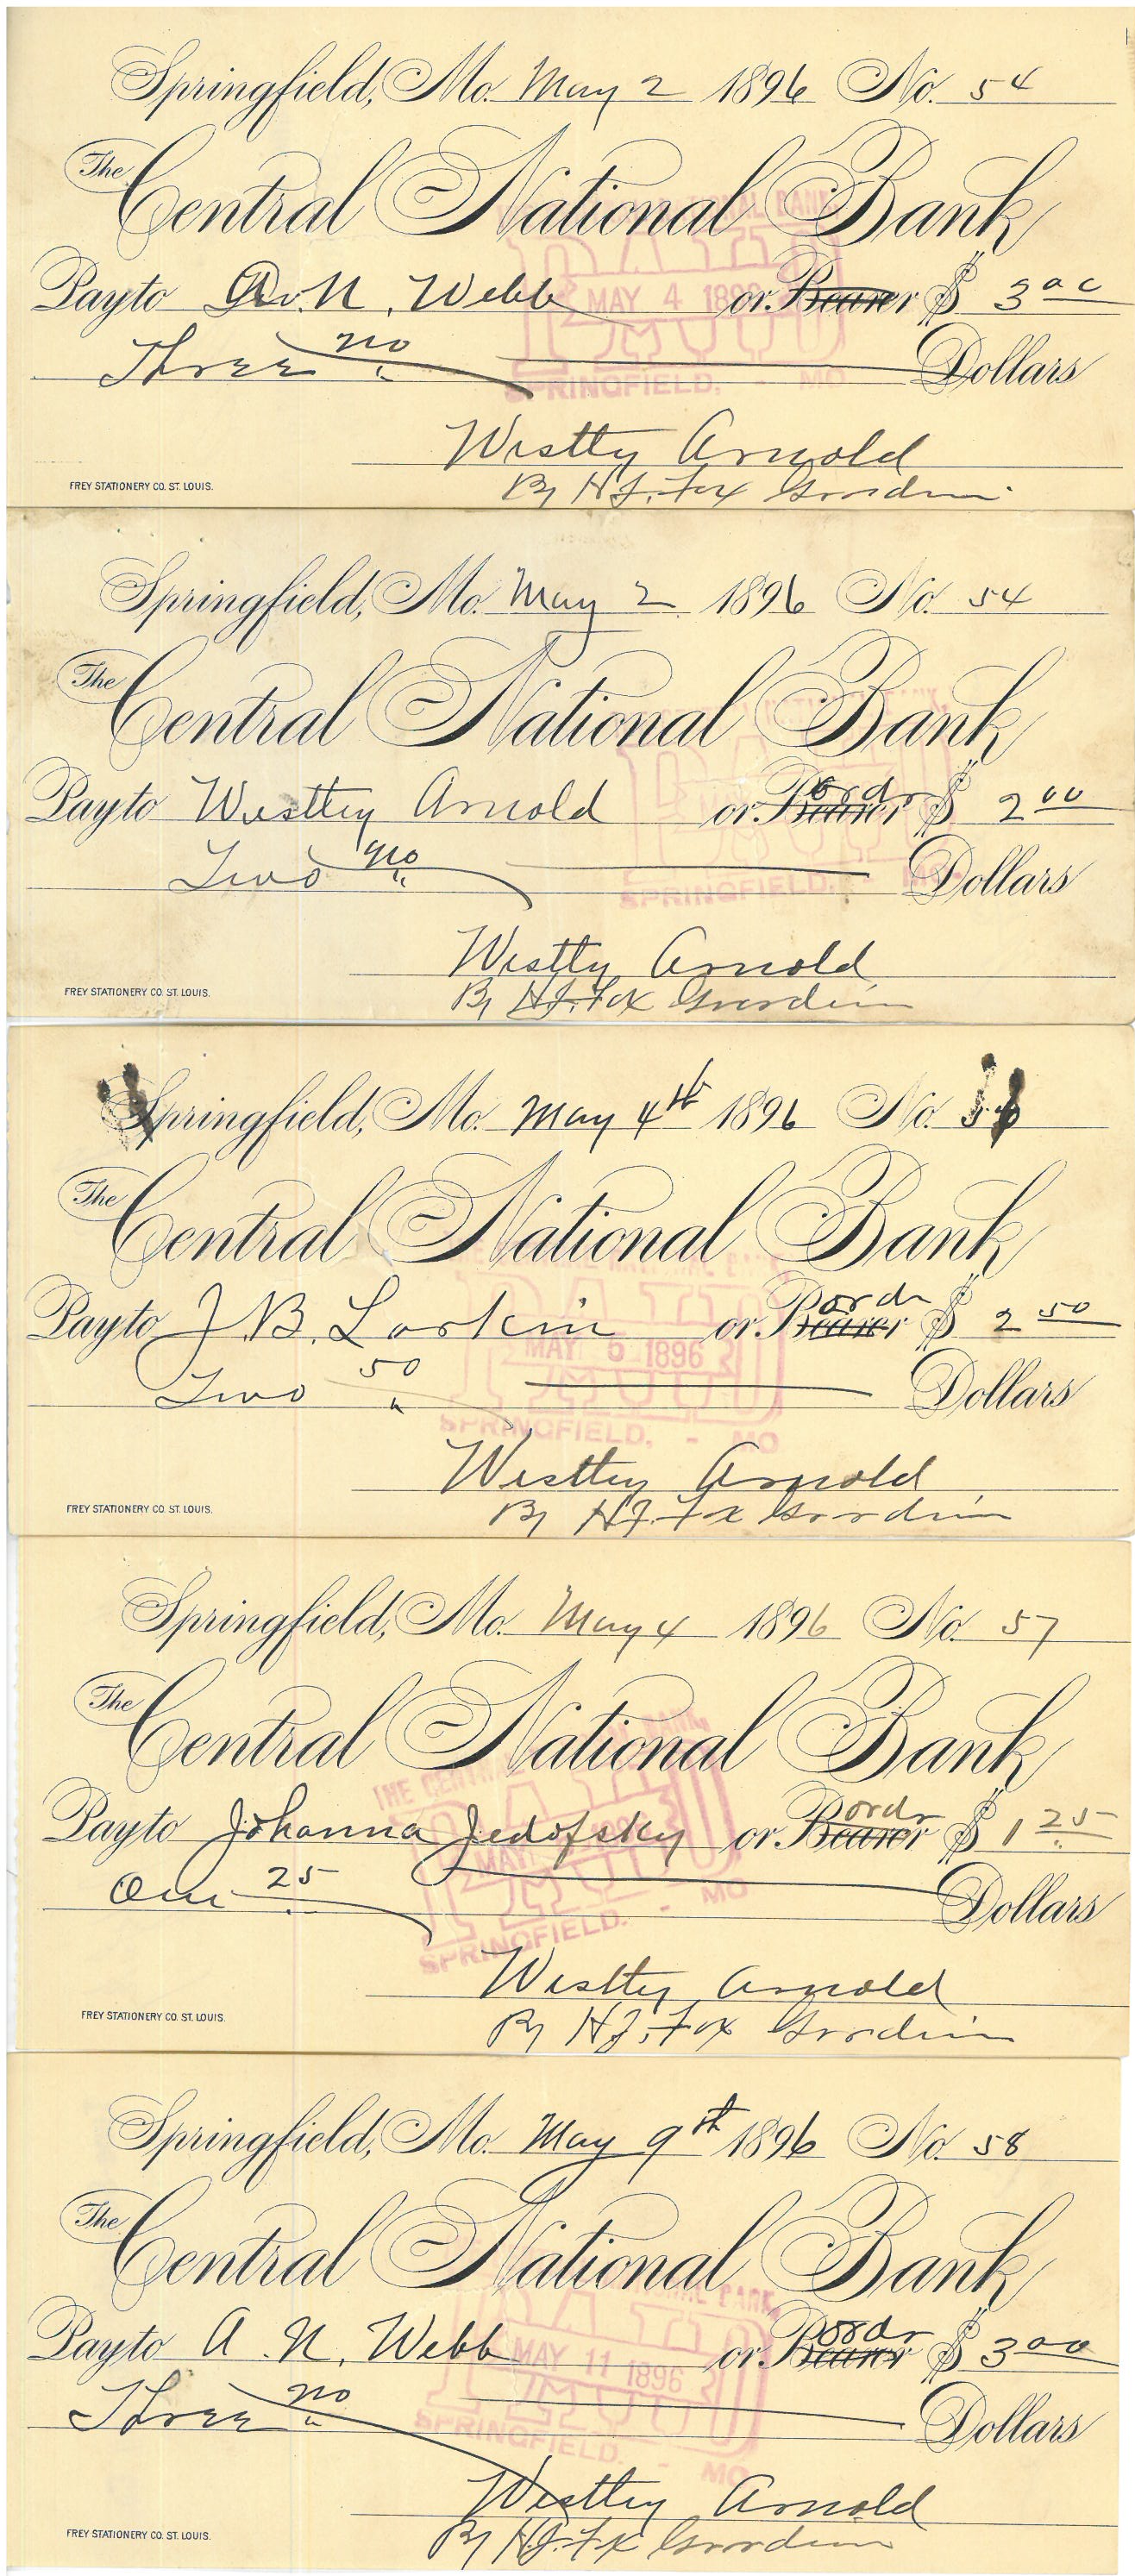 Springfield, Mo. May 2 1896 No. 54
The Central National Bank
CENTRAL NATIONAL BANK
Pay to A. N. Webb or Bearer $ 3 00
PAID
MAY 4 1896
Three no Dollars
SPRINGFIELD, - MO
Westley Arnold
By H J. Fox Guardian
FREY STATIONERY CO. ST. LOUIS.
Springfield, Mo. May 2 1896 No. 54
The Central National Bank
Pay to Westley Arnold or Bearer ordr $ 2 00
PAID
Two no Dollars
SPRINGFIELD, - MO.
Westly Arnold
By H J. Fox Guardian
FREY STATIONERY CO. ST. LOUIS.
Springfield, Mo. May 4th 1896 No. 56
The Central National Bank
Pay to J. B. Larkin or Bearer ordr $ 2 50
PAID
MAY 5 1896
Two 50 Dollars
SPRINGFIELD, - MO
Westley Arnold
By H J. Fox Guardian
FREY STATIONERY CO. ST. LOUIS.
Springfield, Mo. May 4 1896 No. 57
The Central National Bank
THE CENTRAL NATIONAL BANK
Pay to Johanna Jedofsky or Bearer ordr $ 1 25
PAID
MAY
One 25 Dollars
SPRINGFIELD, - MO
Westley Arnold
By H J. Fox Guardian
FREY STATIONERY CO. ST. LOUIS.
Springfield, Mo. May 9th 1896 No. 58
The Central National Bank
Pay to A. N. Webb or Bearer ordr $ 3 00
PAID
MAY 11 1896
Three no Dollars
SPRINGFIELD, - MO
Westley Arnold
By H.J. Fox Guardian
FREY STATIONERY CO. ST. LOUIS.